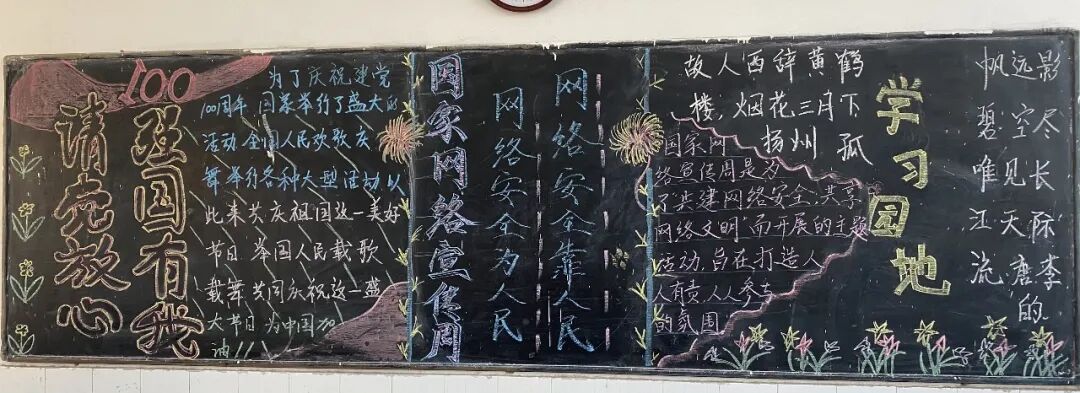 100
请党放心
强国有我
为了庆祝建党
100周年 国家举行了盛大的
活动 全国人民欢歌庆
舞 举行各种大型活动以
此来共庆祖国这一美好
节日.举国人民载歌
载舞共同庆祝这一盛
大节日 为中国加
油!!
国家网络宣传周
网络安全为人民
网络安全靠人民
故人西辞黄鹤
楼,烟花三月下
扬州 孤
国家网
络宣传周是为
了共建网络安全,共享
网络文明"而开展的主题
活动,旨在打造人
人有责,人人参与
的氛围
学习园地
帆远影
碧空尽
唯见长
江天际
流 唐李
的